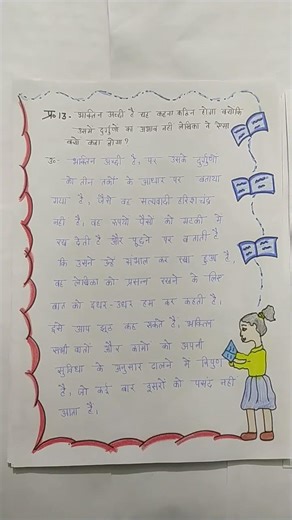 प्र॰13. भक्तिन अच्छी है यह कहना कठिन होगा क्योंकि
उसमें दुर्गुणों का अभाव नहीं लेखिका ने ऐसा
क्यों कहा होगा?
उ॰ भक्तिन अच्छी है, पर उसके दुर्गुणों
को तीन तर्कों के आधार पर बताया
गया है, जैसे वह सत्यवादी हरिश्चंद्र
नहीं है, वह रुपयों पैसों को मटकी में
रख देती है और पूछने पर बताती है
कि उसने उन्हें संभाल कर रखा हुआ है,
वह लेखिका को प्रसन्न रखने के लिए
बात को इधर-उधर कर कहती है,
इसे आप झूठ कह सकते हैं, भक्तिन
सभी बातों और कामों को अपनी
सुविधा के अनुसार ढालने में निपुण
है, जो कई बार दूसरों को पसंद नहीं
आता है।